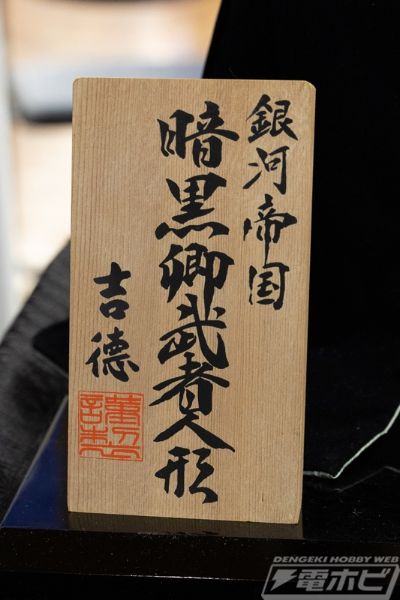 銀河帝国
暗黒卿武者人形
吉德
DENGEKI HOBBY WEB
電ホビ